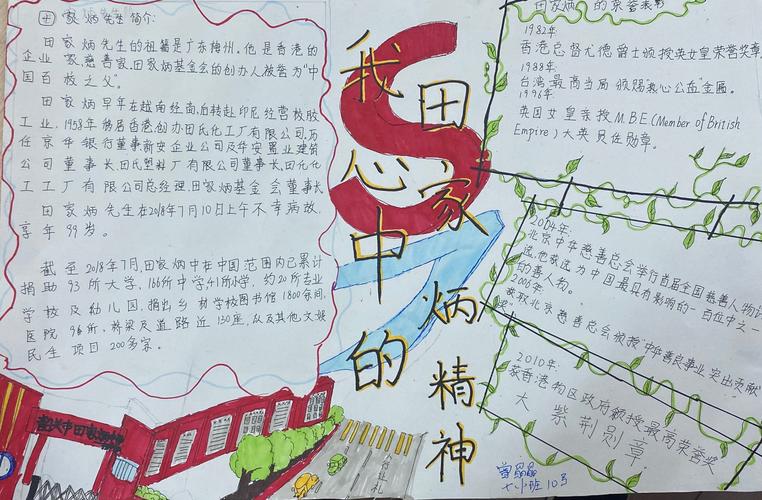 田家炳先生简介:
田家炳先生的祖籍是广东梅州。他是香港的
企业家,慈善家,田家炳基金会的创办人,被誉为"中
国百校之父"。
田家炳早年在越南经商,后转赴印尼经营橡胶
工业,1958年移居香港,创办田氏化工厂有限公司,历
任京华银行董事,新安企业公司及华安置业建筑
公司董事长,田氏塑料厂有限公司董事长,田氏化
工工厂有限公司总经理,田家炳基金会董事长
田家炳先生在2018年7月10日上午不幸病故,
享年99岁。
截至2018年7月,田家炳中在中国范围内已累计
捐助93所大学,166所中学,41所小学,约20所专业
学校及幼儿园,捐出乡村学校图书馆1800余间,
医院 所,桥梁及道路近130座,以及其他文娱
民生项目200多宗。
我心中的
田家炳精神
田家炳 的荣誉表彰
1982年
香港总督尤德爵士颁授英女皇荣誉奖章
1988年
台湾最高当局颁赐"热心公益"金匾。
1996年
英国女皇亲授M.B.E(Member of British
Empire)大英员佐勋章。
2004年:
北京中华慈善总会举行首届全国慈善人物评
选,他被选为中国最具有影响的一百位中之一
的善人物。
2006年
获北京慈善总会被授"中华善良事业突出贡献
2010年:
获香港特区政府颁授最高荣誉奖
大紫荆勋章
中田家炳
七班10号